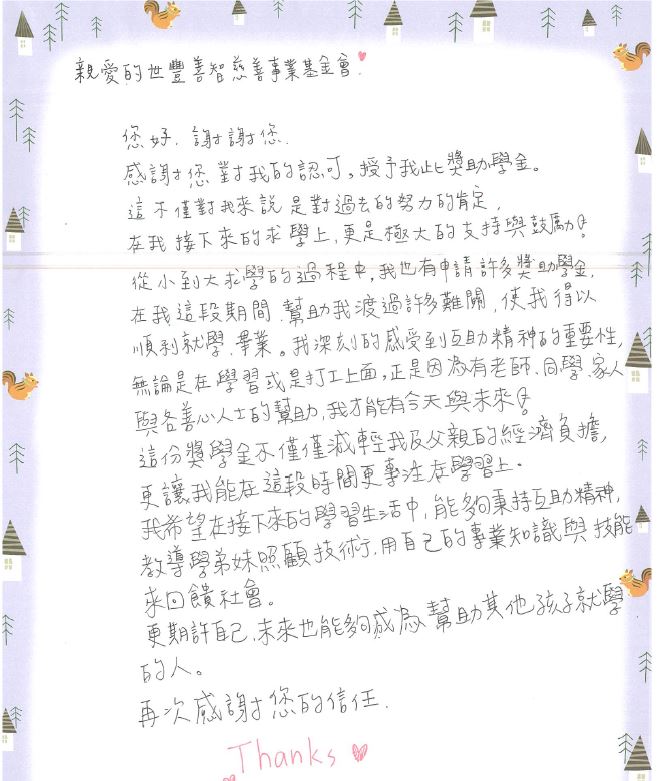 親愛的世豐善智慈善事業基金會.
您好. 謝謝您.
感謝您對我的認可。授予我此獎助學金。
這不僅對我來說是對過去的努力的肯定,
在我接下來的求學上,更是極大的支持與鼓勵!
從小到大求學的過程中,我也有申請許多獎助學金,
在我這段期間.幫助我渡過許多難關,使我得以
順利就學.畢業。我深刻的感受到互助精神的重要性,
無論是在學習或是打工上面,正是因為有老師.同學.家人
與各善心人士的幫助,我才能有今天與未來!
這份獎學金不僅僅減輕我及父親的經濟負擔,
更讓我能在這段時間更專注在學習上。
我希望在接下來的學習生活中,能夠秉持互助精神,
教導學弟妹照顧技術,用自己的專業知識與技能
來回饋社會。
更期許自己,未來也能夠成為幫助其他孩子就學
的人。
再次感謝您的信任.
Thanks